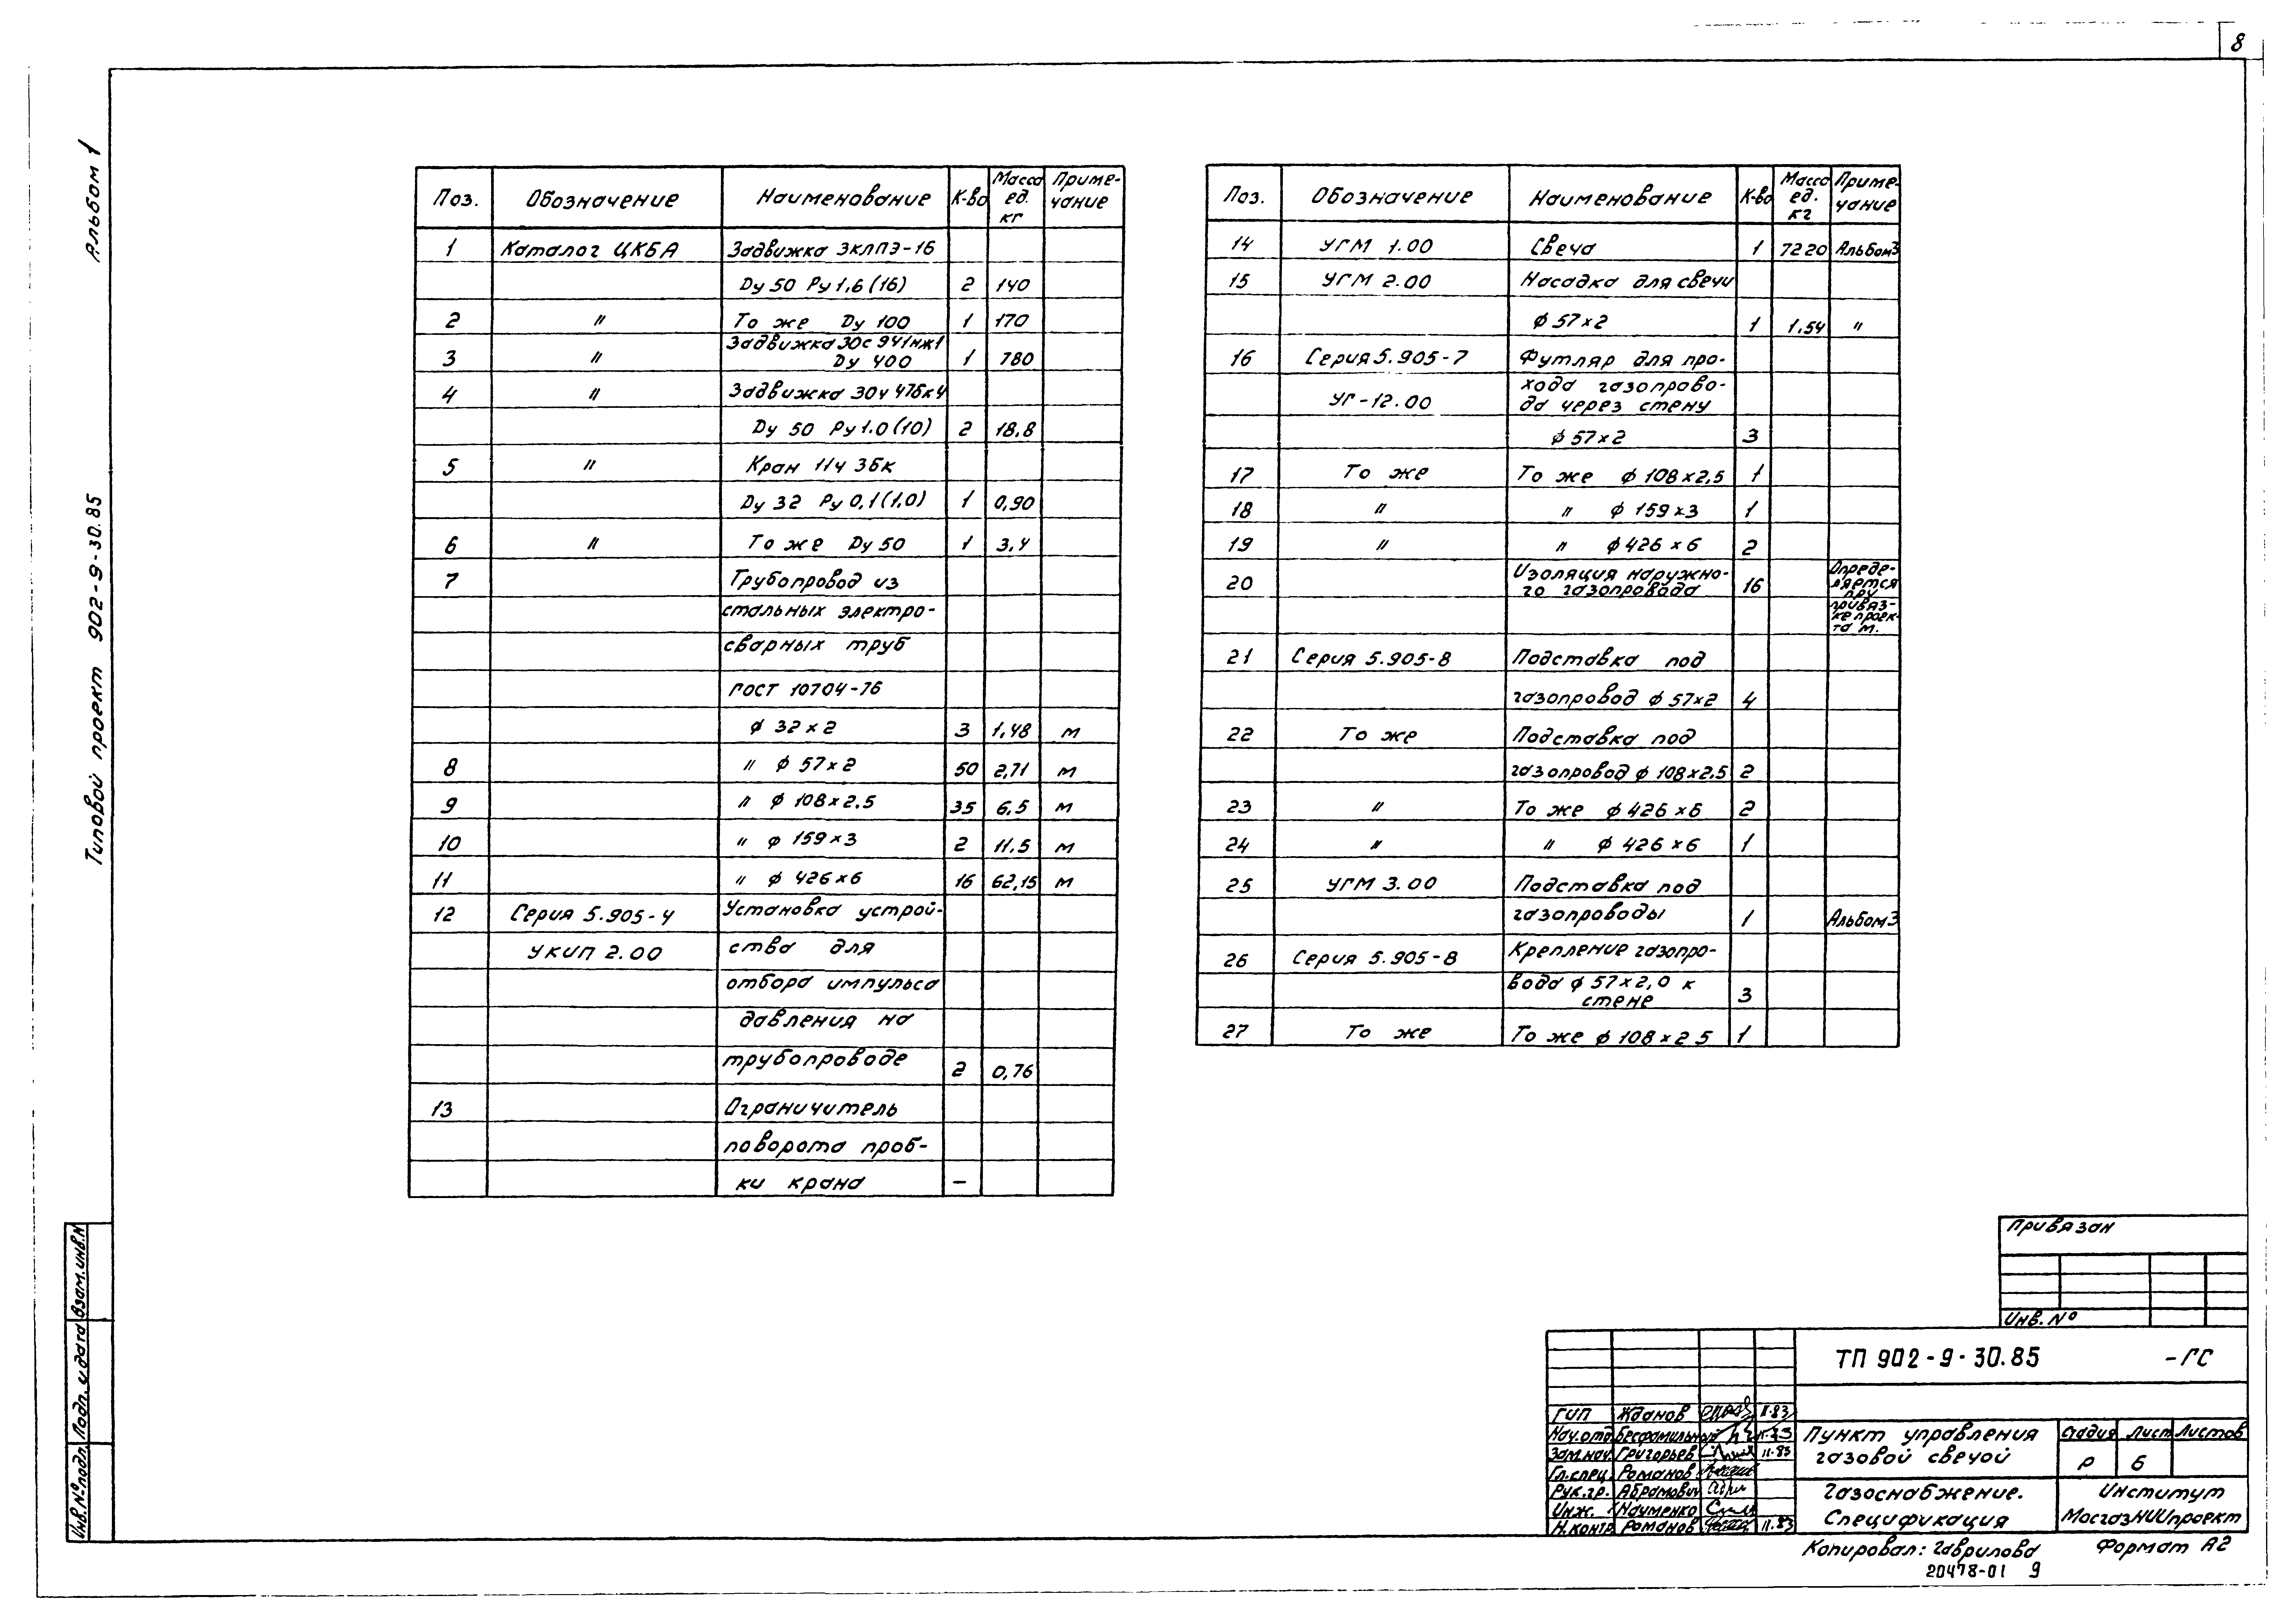 8
Альбом 1
Типовой проект 902-9-30.85
Поз. Обозначение Наименование К-во Масса ед. кг Приме-чание
1 Каталог ЦКБА Задвижка ЗКЛПЭ-16
Ду 50 Ру 1,6 (16) 2 140
2 " То же Ду 100 1 170
3 " Задвижка 30с 941нж1
Ду 400 1 780
4 " Задвижка 30ч 47бк4
Ду 50 Ру 1.0 (10) 2 18,8
5 " Кран 11ч 3бк
Ду 32 Ру 0,1 (1,0) 1 0,90
6 " То же Ду 50 1 3,4
7 Трубопровод из
стальных электро-
сварных труб
ГОСТ 10704-76
ф 32×2 3 1,48 м
8 " ф 57×2 50 2,71 м
9 " ф 108×2.5 35 6,5 м
10 " ф 159×3 2 11,5 м
11 " ф 426×6 16 62,15 м
12 Серия 5.905-4 Установка устрой-
УКИП 2.00 ства для
отбора импульса
давления на
трубопроводе 2 0,76
13 Ограничитель
поворота проб-
ки крана –
Поз. Обозначение Наименование К-во Масса ед. кг Приме-чание
14 УГМ 1.00 Свеча 1 7220 Альбом 3
15 УГМ 2.00 Насадка для свечи
ф 57×2 1 1.54 "
16 Серия 5.905-7 Футляр для про-
УГ-12.00 хода газопрово-
да через стену
ф 57×2 3
17 То же То же ф 108×2,5 1
18 " " ф 159×3 1
19 " " ф 426×6 2
20 Изоляция наружно-
го газопровода 16 Опреде-
ляется
при
привяз-
ке проек-
та м.
21 Серия 5.905-8 Подставка под
газопровод ф 57×2 4
22 То же Подставка под
газопровод ф 108×2.5 2
23 " То же ф 426×6 2
24 " " ф 426×6 1
25 УГМ 3.00 Подставка под
газопроводы 1 Альбом 3
26 Серия 5.905-8 Крепление газопро-
вода ф 57×2,0 к
стене 3
27 То же То же ф 108×2 5 1
Инв.№подл. Подп. и дата Взам.инв.N
Привязан
Инв. №
ТП 902-9-30.85 -ГС
ГИП Жданов II.83
Нач.отд. Бесфамильный
Зам.нач. Григорьев 11.83
Гл.спец. Романов
Рук.гр. Абрамович
Инж. Науменко
Н.контр Романов 11.83
Пункт управления
газовой свечой
Стадия Лист Листов
Р 6
Газоснабжение.
Спецификация
Институт
МосгазНИИпроект
Копировал: Гаврилова Формат А2
20478-01 9